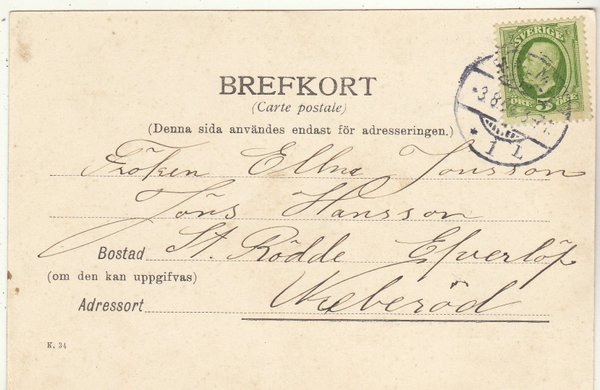 SVERIGE
BREFKORT
(Carte postale)
(Denna sida användes endast för adresseringen.)
Fröken Ellna Jonsson
Jöns Hansson
Bostad St. Rödde Efverlöf
(om den kan uppgifvas)
Adressort Weberöd
K. 34